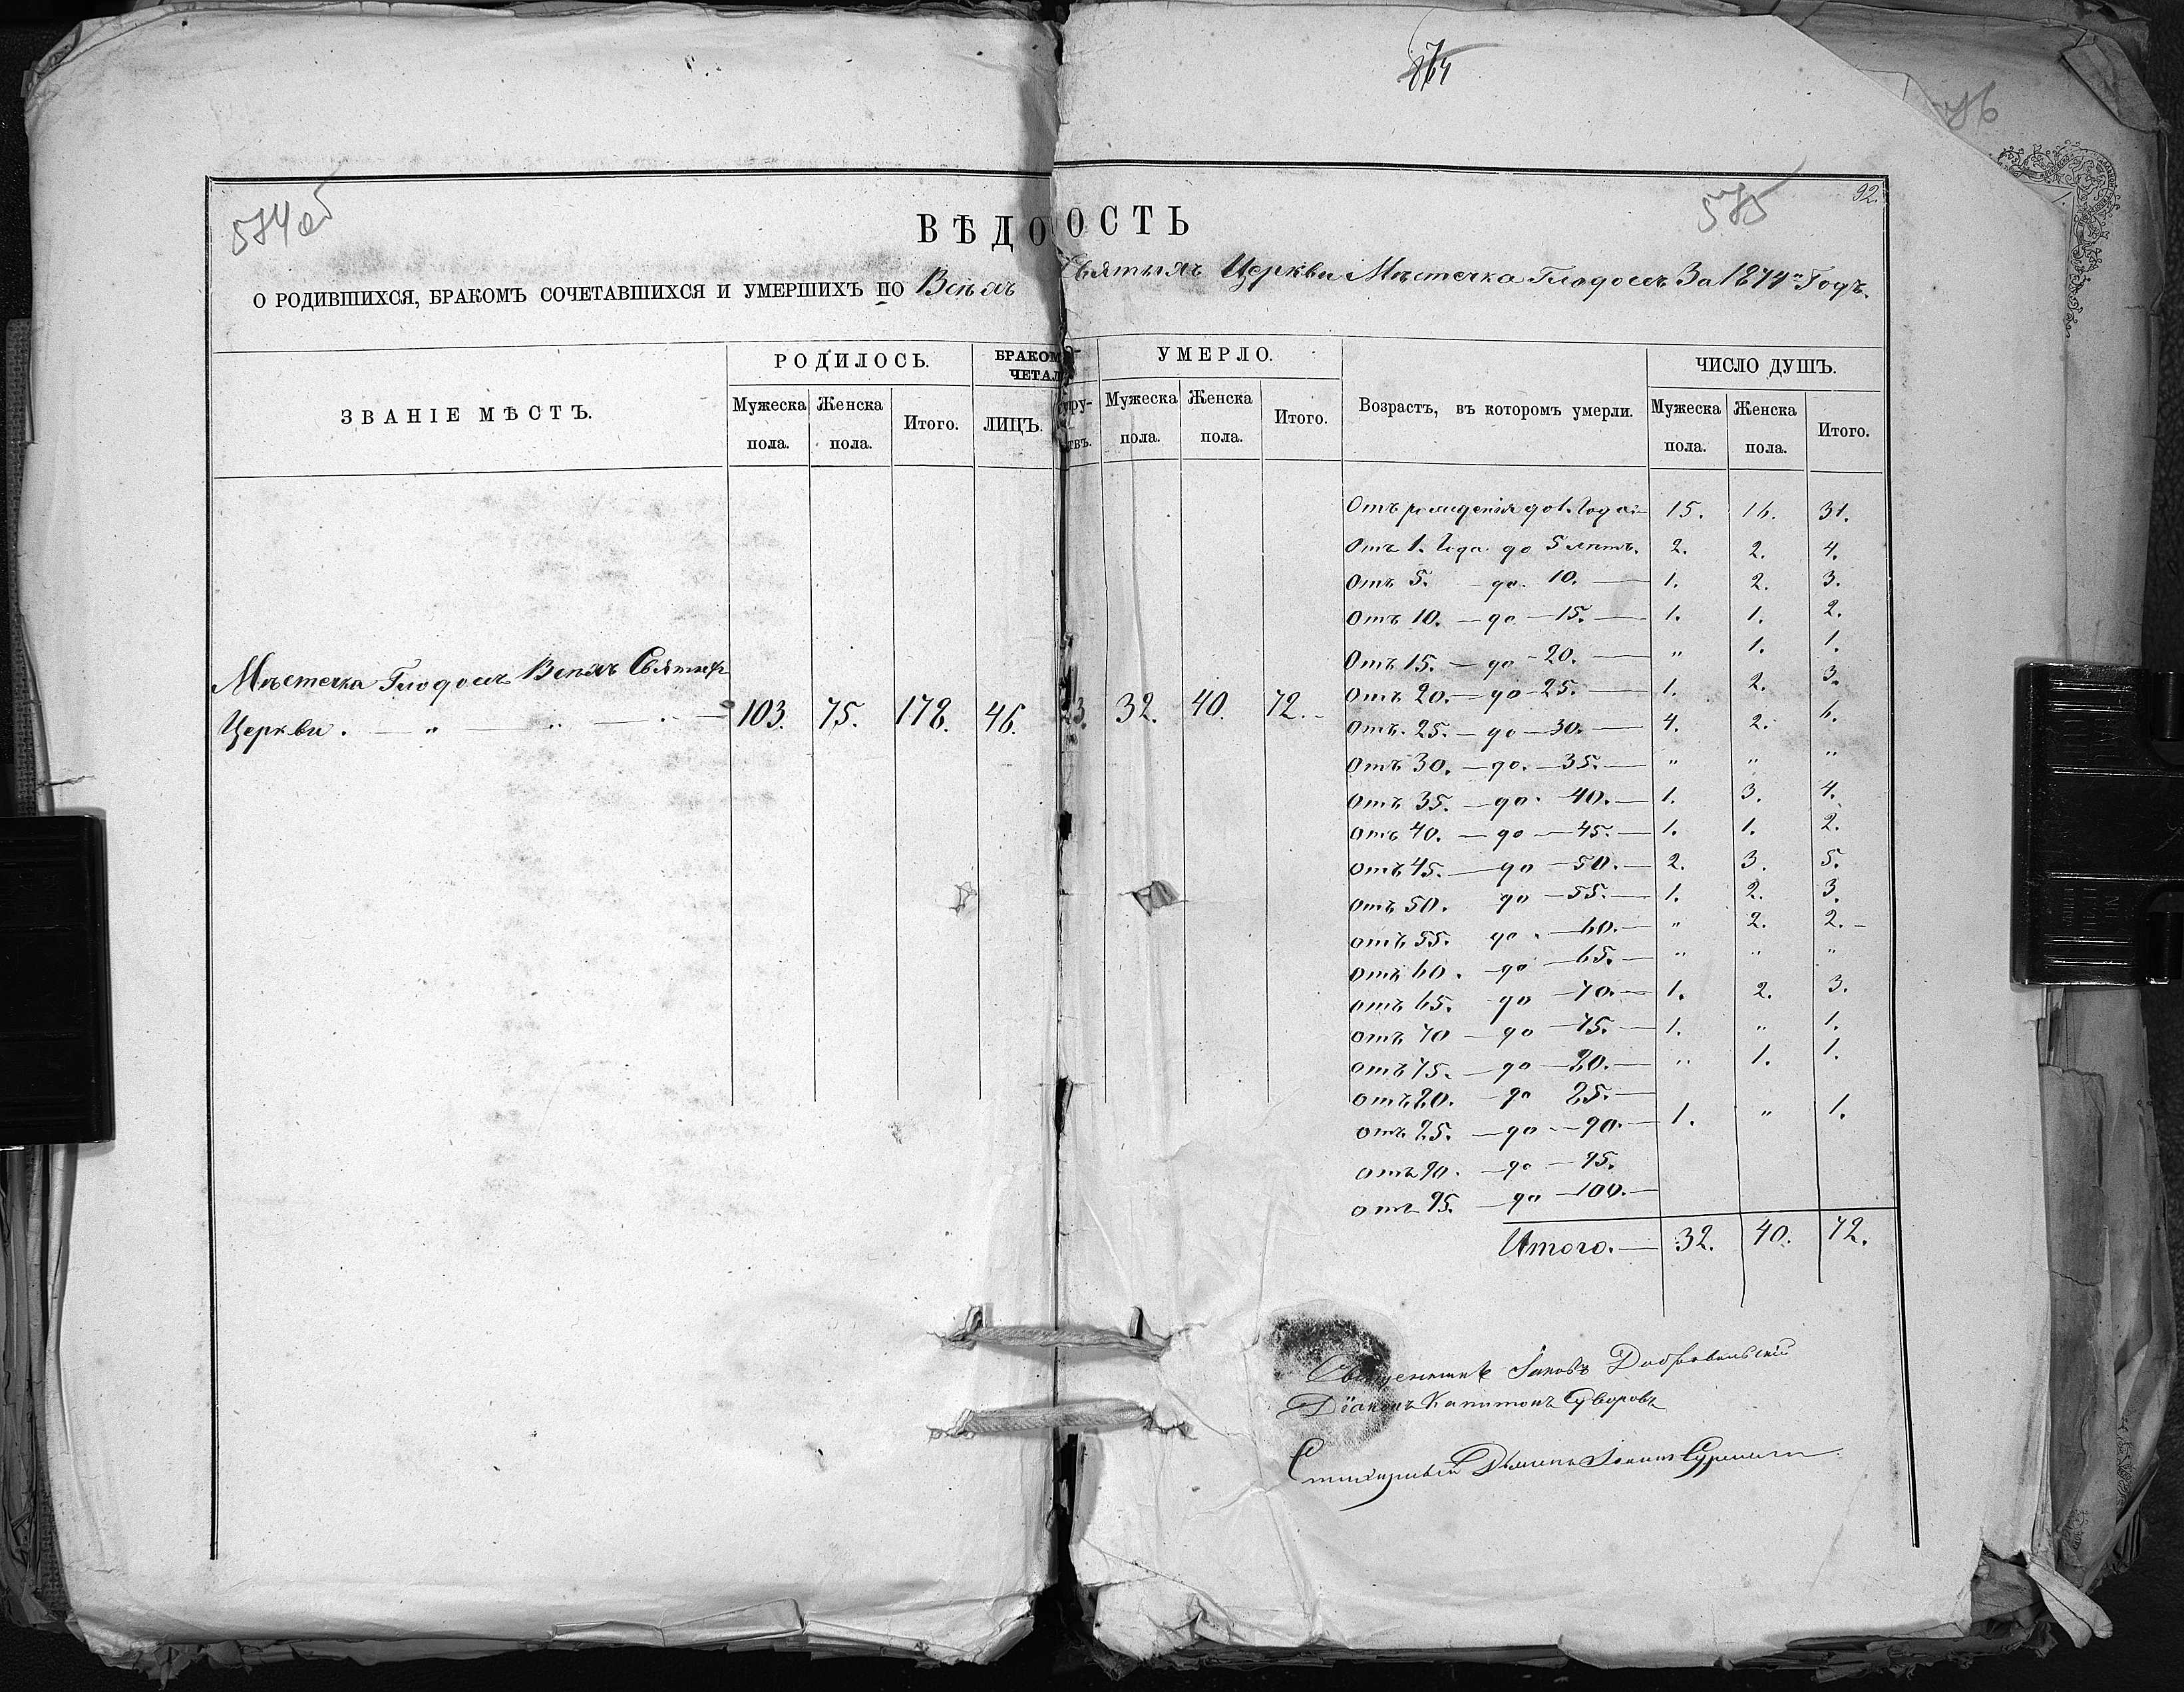 864
576
574 об
575
92.
1.
ВѢДОМОСТЬ
О РОДИВШИХСЯ, БРАКОМЪ СОЧЕТАВШИХСЯ И УМЕРШИХЪ ПО Всѣхъ Святыхъ Церкви Мѣстечка Глодосъ За 1874й Годъ.
ЗВАНІЕ МѢСТЪ.
РОДИЛОСЬ.
Мужеска пола.
Женска пола.
Итого.
БРАКОМЪ
ЧЕТАЛ
ЛИЦЪ.
УМЕРЛО.
Мужеска пола.
Женска пола.
Итого.
Возрастъ, въ которомъ умерли.
ЧИСЛО ДУШЪ.
Мужеска пола.
Женска пола.
Итого.
Мѣстечка Глодосъ Всѣхъ Святыхъ
Церкви . — " — " — 103. 75. 178. 46. 23. 32. 40. 72.
Отъ рожденія до 1. Года — 15. 16. 31.
Отъ 1. Года до 5 лѣтъ. 2. 2. 4.
Отъ 5. — до 10. — 1. 2. 3.
Отъ 10. — до — 15. — 1. 1. 2.
Отъ 15. — до — 20. — " 1. 1.
Отъ 20. — до — 25. — 1. 2. 3.
Отъ 25. — до — 30. — 4. 2. 6.
Отъ 30. — до — 35. — " " "
Отъ 35. — до — 40. — 1. 3. 4.
Отъ 40. — до — 45. — 1. 1. 2.
отъ 45. — до — 50. — 2. 3. 5.
отъ 50. до — 55. — 1. 2. 3.
отъ 55. до — 60. — " 2. 2. —
отъ 60. до — 65. — " " "
отъ 65. до — 70. — 1. 2. 3.
отъ 70 — до — 75. — 1. " 1.
отъ 75. — до — 80. — " 1. 1.
отъ 80. — до 85. —
отъ 85. — до — 90. — 1. " 1.
отъ 90. — до — 95.
отъ 95. — до — 100. —
Итого. — 32. 40. 72.
Священникъ Іаковъ Добровольскій
Діаконъ Капитонъ Суворовъ
Стихарный Іоаннъ